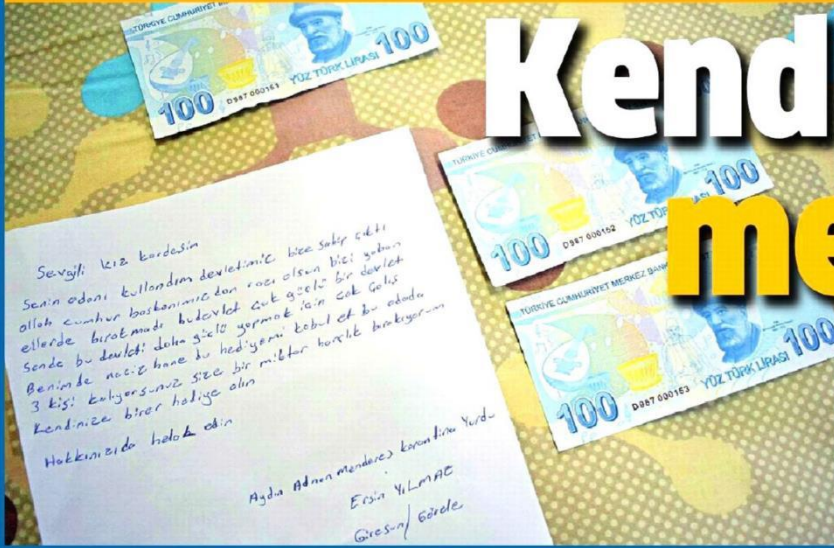 TÜRKİYE CUMHURİYET
100
YÜZ TÜRK LİRASI
100 D987 000161
Kend
me
TÜRKİYE CUMHURİYET
100
100 D987 000162 YÜZ TÜRK
TÜRKİYE CUMHURİYET MERKEZ BANK
100
100 D987 000163 YÜZ TÜRK LİRASI
Sevgili kız kardeşim
Senin odanı kullandım devletimiz bize sahip çıktı
allah cumhur başkanımızdan razı olsun bizi yaban
ellerde bıratmadı budevlet çok güçlü bir devlet
Sende bu devleti daha güçlü yapmak için çok çalış
Benimde naciz hane bu hediyemi kabul et bu odada
3 kişi kalıyorsunuz size bir miktar harçlık bırakıyorum
kendinize birer hediye alın
Hakkınızıda helal edin
Aydın Adnan menderes karantina Yurdu
Ersin YILMAZ
Giresun / Görele